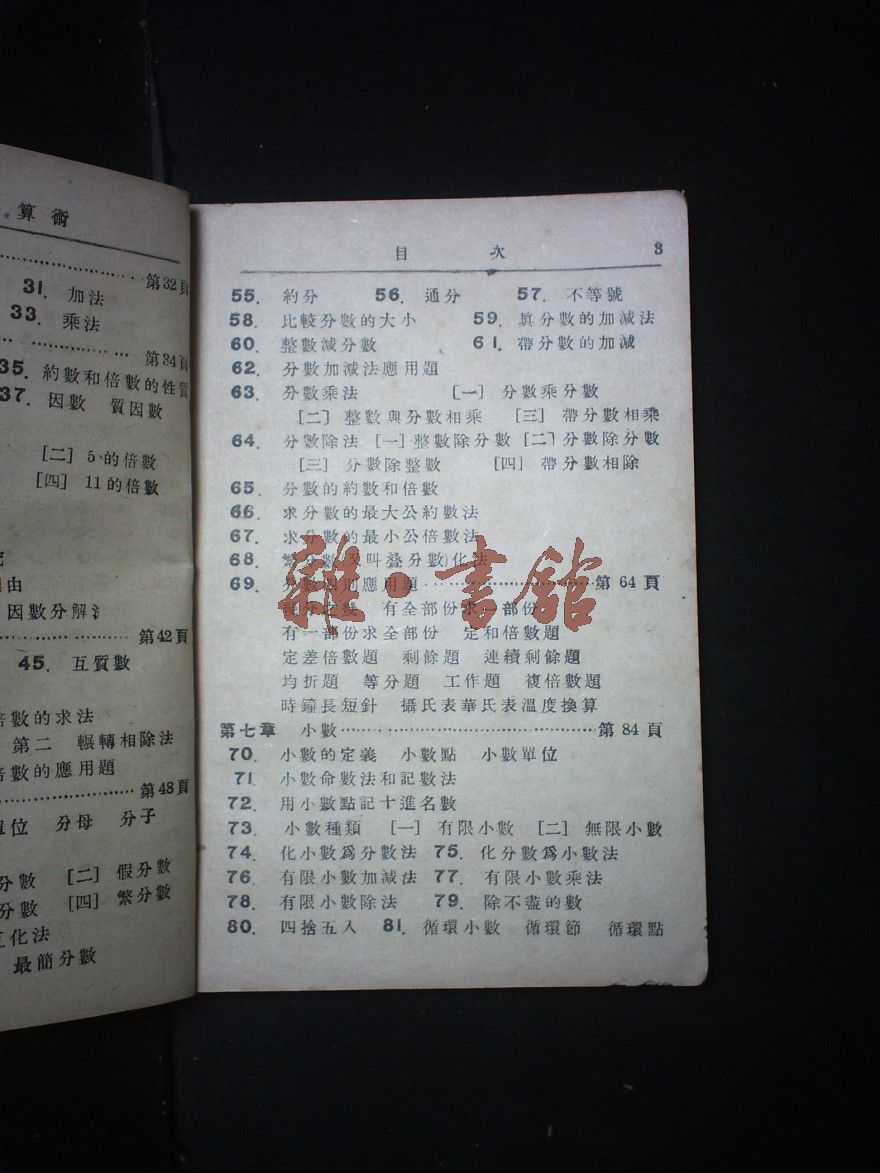 算術
第32頁
31. 加法
33. 乘法
第34頁
35. 約數和倍數的性質
37. 因數 質因數
[二] 5的倍數
[四] 11的倍數
因數分解
第42頁
45. 互質數
倍數的求法
第二 輾轉相除法
倍數的應用題
第48頁
單位 分母 分子
分數 [二] 假分數
分數 [四] 繁分數
互化法
最簡分數
目 次 3
55. 約分 56. 通分 57. 不等號
58. 比較分數的大小 59. 眞分數的加減法
60. 整數減分數 61. 帶分數的加減
62. 分數加減法應用題
63. 分數乘法 [一] 分數乘分數
[二] 整數與分數相乘 [三] 帶分數相乘
64. 分數除法 [一] 整數除分數 [二] 分數除分數
[三] 分數除整數 [四] 帶分數相除
65. 分數的約數和倍數
66. 求分數的最大公約數法
67. 求分數的最小公倍數法
68. 繁分數(又叫叠分數)化法
69. 分數四則應用題 第64頁
幾分之幾 有全部份求一部份
有一部份求全部份 定和倍數題
定差倍數題 剩餘題 連續剩餘題
均折題 等分題 工作題 複倍數題
時鐘長短針 攝氏表華氏表溫度換算
第七章 小數 第84頁
70. 小數的定義 小數點 小數單位
71. 小數命數法和記數法
72. 用小數點記十進名數
73. 小數種類 [一] 有限小數 [二] 無限小數
74. 化小數爲分數法 75. 化分數爲小數法
76. 有限小數加減法 77. 有限小數乘法
78. 有限小數除法 79. 除不盡的數
80. 四捨五入 81. 循環小數 循環節 循環點
雜·書館